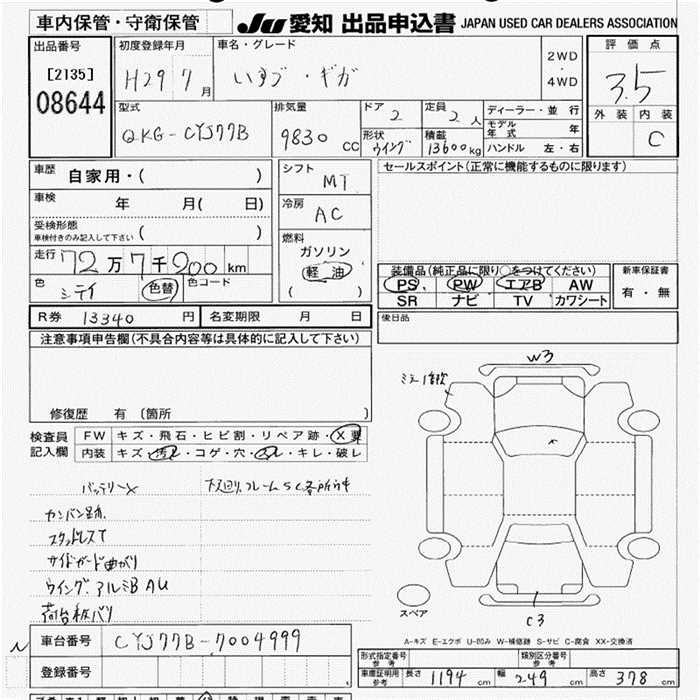 車内保管・守衛保管 JU 愛知 出品申込書 JAPAN USED CAR DEALERS ASSOCIATION
出品番号 [2135] 08644
初度登録年月 H29 7月
車名・グレード いすゞ・ギガ
2WD・4WD
評価点 3.5
外装 内装 C
型式 QKG-CYJ77B
排気量 9830 CC
ドア 2
定員 2人
形状 ウイング
積載 13600kg
ディーラー・並行
モデル年式 年
ハンドル 左・右
車歴 自家用・( )
車検 年 月( 日)
受検形態 ( )
車検付きのみ記入して下さい
走行 72万7千900km
色 シテイ 色替 色コード
シフト MT
冷房 AC
燃料
ガソリン
軽油
( )
セールスポイント(正常に機能するものに限ります)
装備品(純正品に限り○をつけてください)
PS PW エアB AW
SR ナビ TV カワシート
新車保証書
有・無
R券 13340円 名変期限 月 日
後日品
注意事項申告欄(不具合内容等は具体的に記入して下さい)
修復歴 有 (箇所 )
検査員記入欄
FW キズ・飛石・ヒビ割・リペア跡・X要
内装 キズ・汚レ・コゲ・穴・スレ・キレ・破レ
バッテリーX
カンバン跡
スタッドレスT
サイドガード曲がり
ウイング.アルミB AU
荷台板バリ
W3
C3
スペア
A-キズ E-エクボ U-凹み W-補修跡 S-サビ C-腐食 XX-交換済
車台番号 CYJ77B-7004999
登録番号
型式指定番号 参考
類別区分番号 参考
車庫証明用 参考 長さ 1194cm 幅 249cm 高さ 378cm